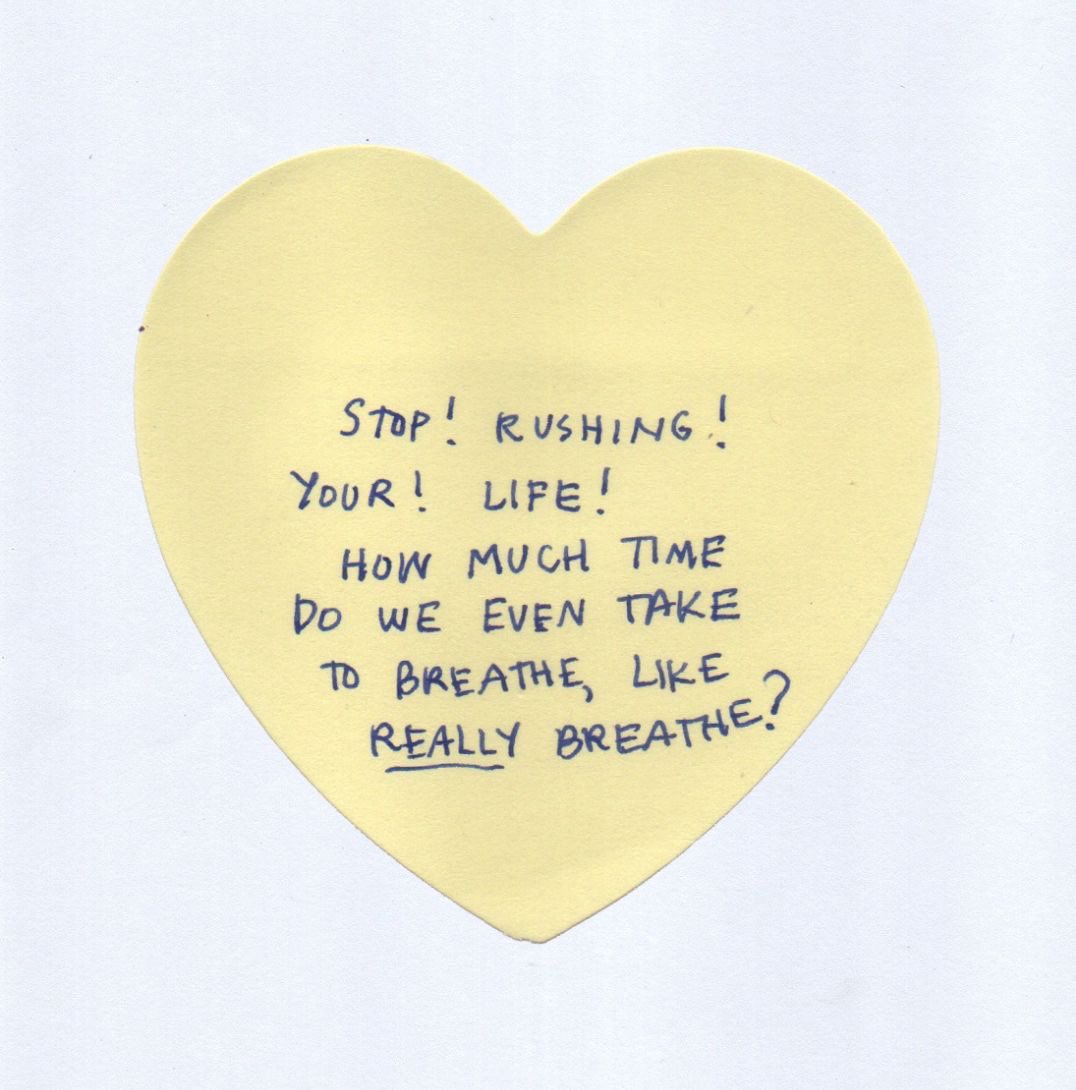 STOP! RUSHING!
YOUR! LIFE!
HOW MUCH TIME
DO WE EVEN TAKE
TO BREATHE, LIKE
REALLY BREATHE?